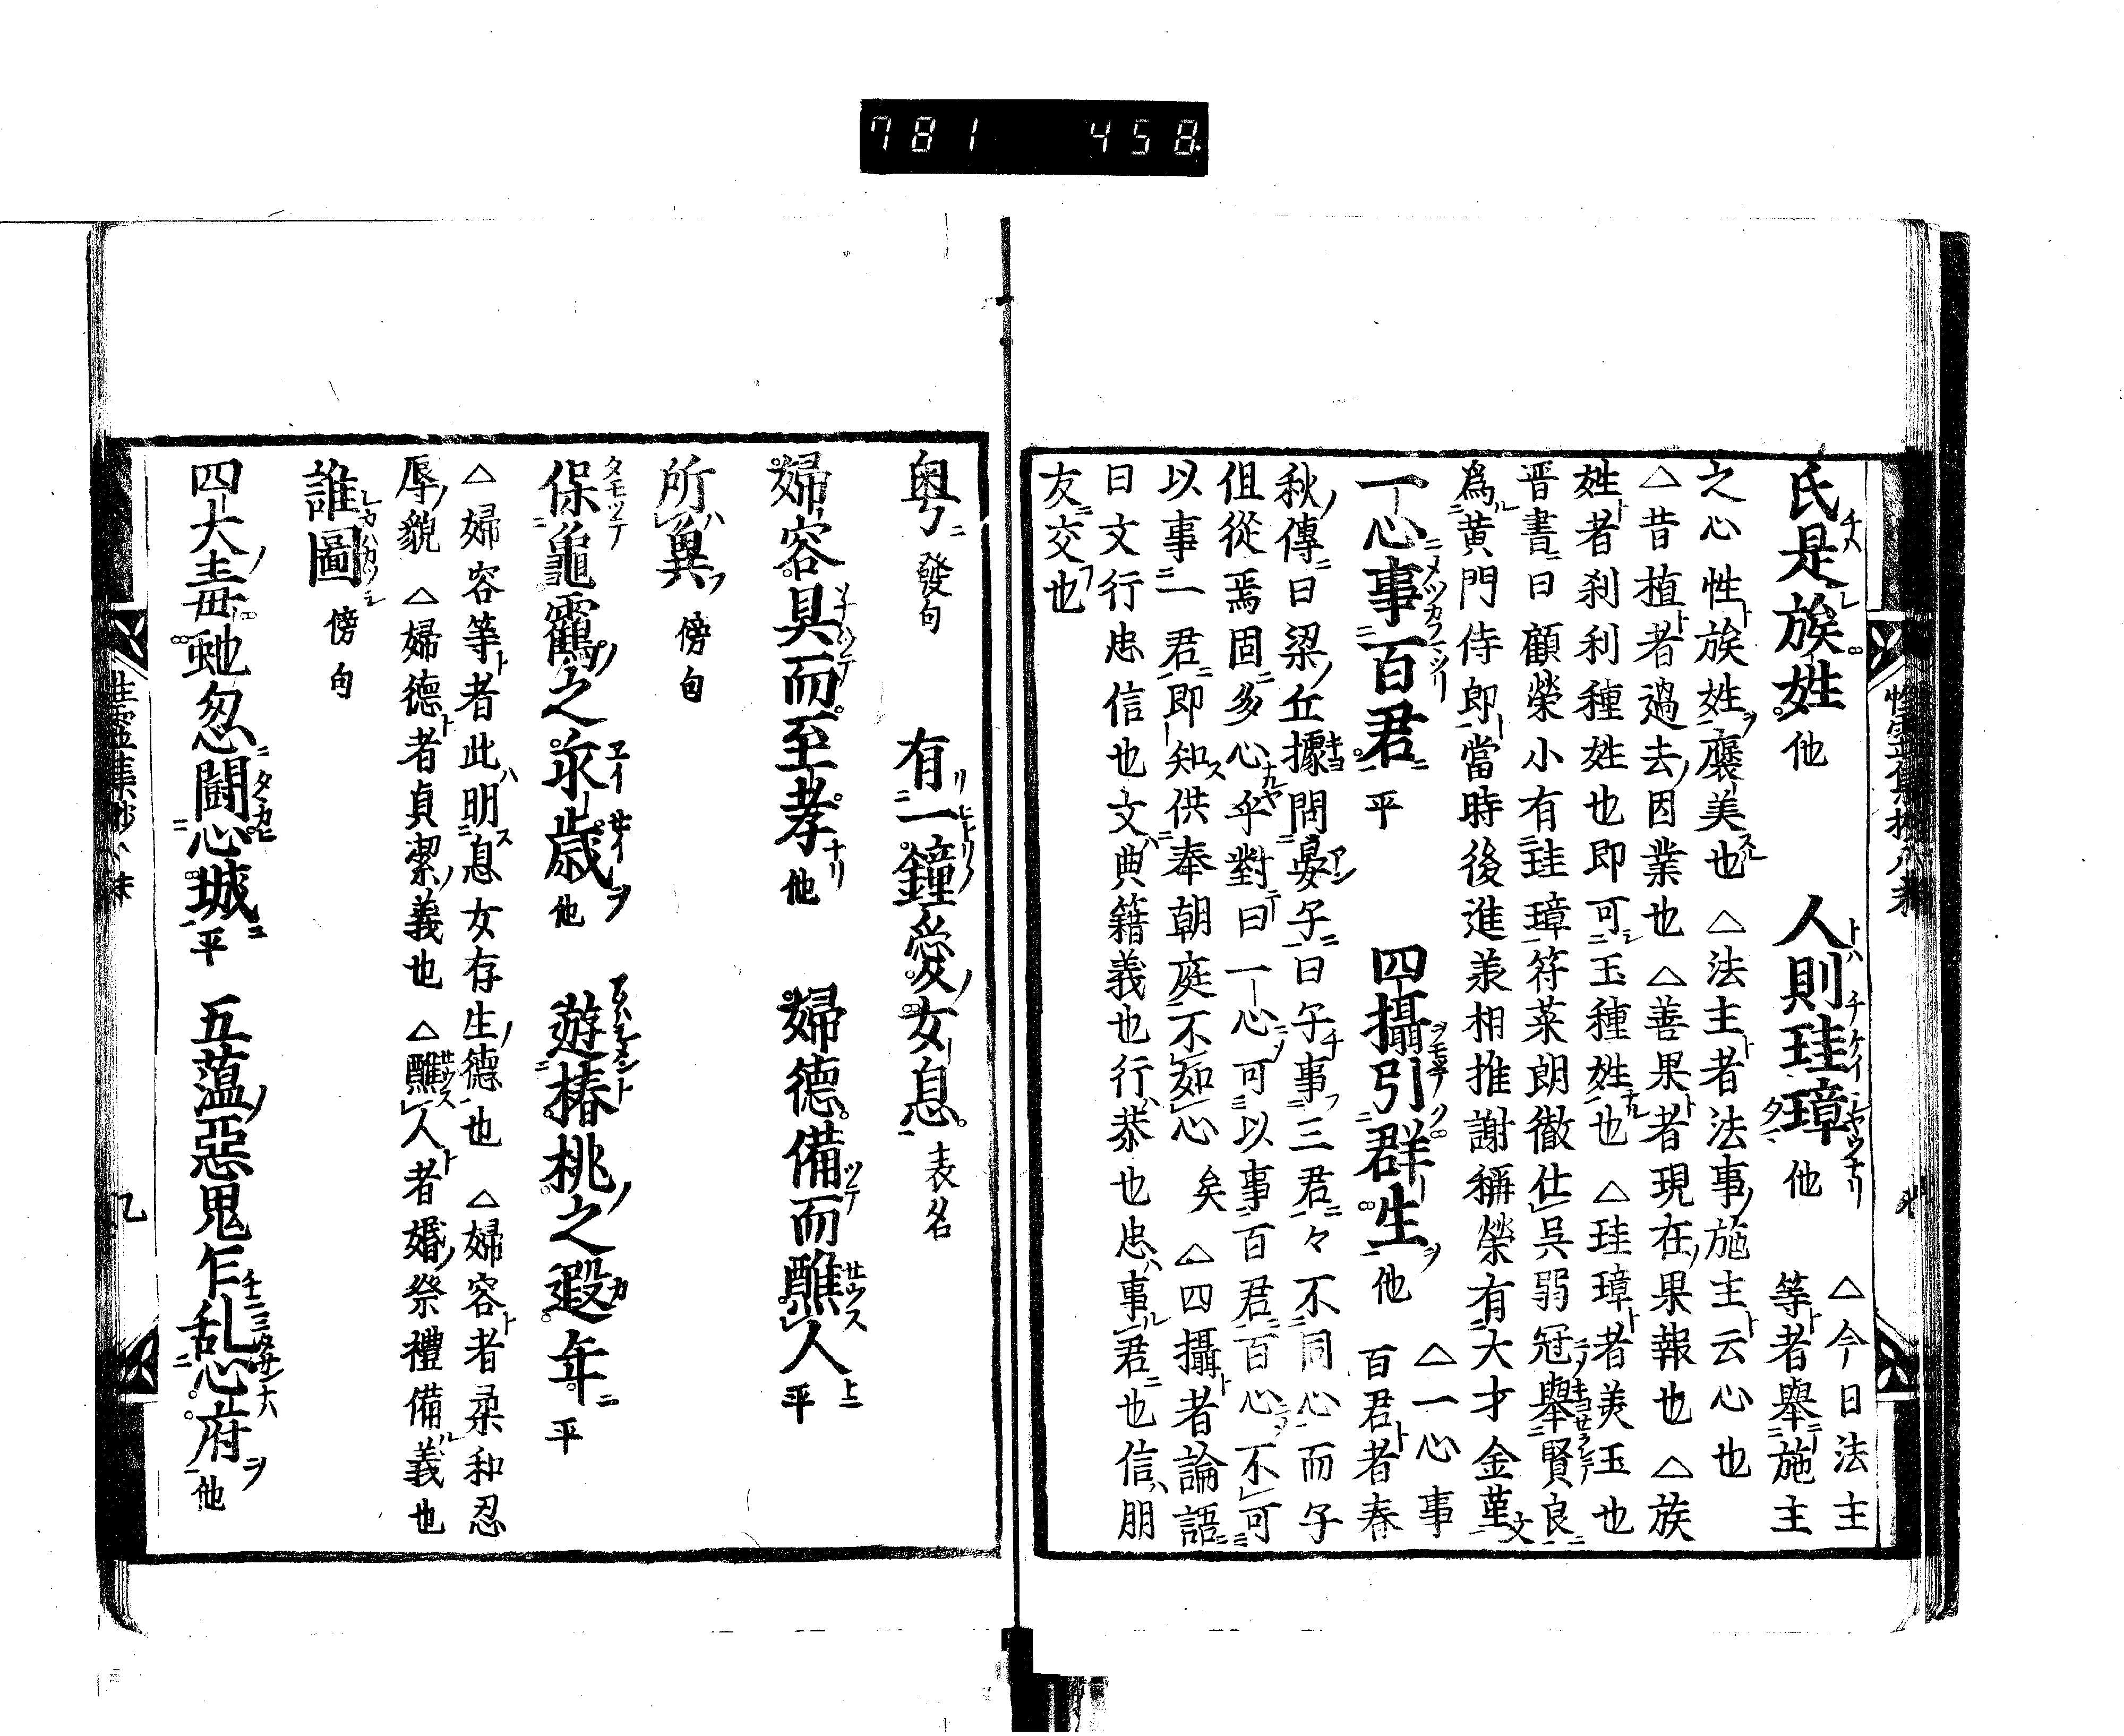 781 458
氏是族姓他 人則珪璋他 △今日法主
等者舉施主
之心性族姓褒美也 △法主者法事施主云心也
△昔植者過去因業也 △善果者現在果報也 △族
姓者刹利種姓也即可玉種姓也 △珪璋者美玉也
晋書曰顧榮小有珪璋符菜朗徹仕吳弱冠舉賢良
爲黄門侍郎當時後進羕相推謝稱榮有大才金菫文
一心事百君平 四攝引群生他 △一心事
百君者春
秋傳曰梁丘據問晏子曰子事三君々不同心而子
俱從焉固多心乎對曰一心可以事百君百心不可
以事一君即知供奉朝庭不如心矣 △四攝者論語
曰文行忠信也文典籍義也行恭也忠事君也信朋
友交也
粤發句 有一鐘愛女息表名
婦容具而至孝他 婦德備而醮人平
所冀傍句
保龜鶴之永歳他 遊椿桃之遐年平
△婦容等者此明息女存生德也 △婦容者柔和忍
辱貌 △婦德者貞潔義也 △醮人者婚祭禮備義也
誰圖傍句
四大毒虵忽闘心城平 五薀惡鬼乍乱心府他